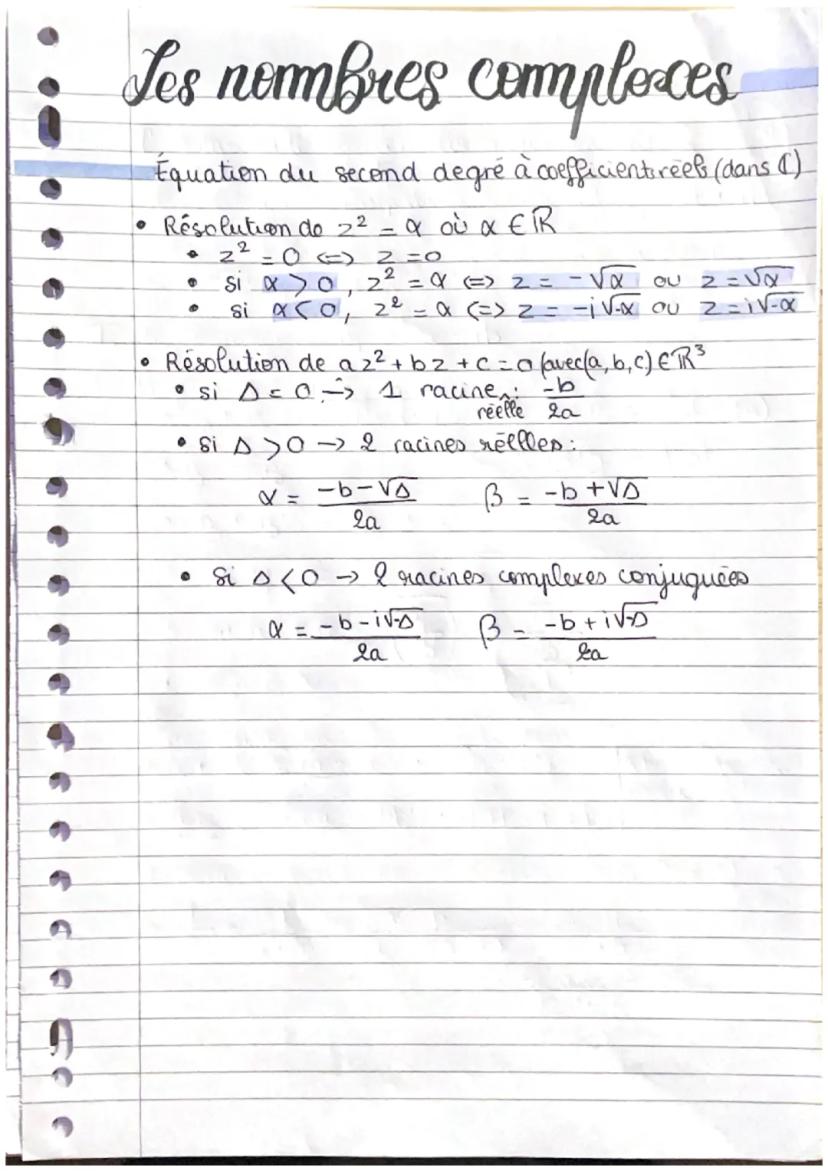 Les nombres complexes
Équation du second degré à coefficients réels (dans ℂ)
• Résolution de z² = α où α ∈ ℝ
• z² = 0 <=> z = 0
• si α > 0, z² = α <=> z = -√α ou z = √α
• si α < 0, z² = α <=> z = -i√-α ou z = i√-α
• Résolution de az² + bz + c = 0 (avec (a, b, c) ∈ ℝ³
• si Δ = 0 → 1 racine réelle : -b/2a
• si Δ > 0 → 2 racines réelles :
α = (-b-√Δ)/2a β = (-b+√Δ)/2a
• si Δ < 0 → 2 racines complexes conjuguées
α = (-b-i√-Δ)/2a β = (-b+i√-Δ)/2a